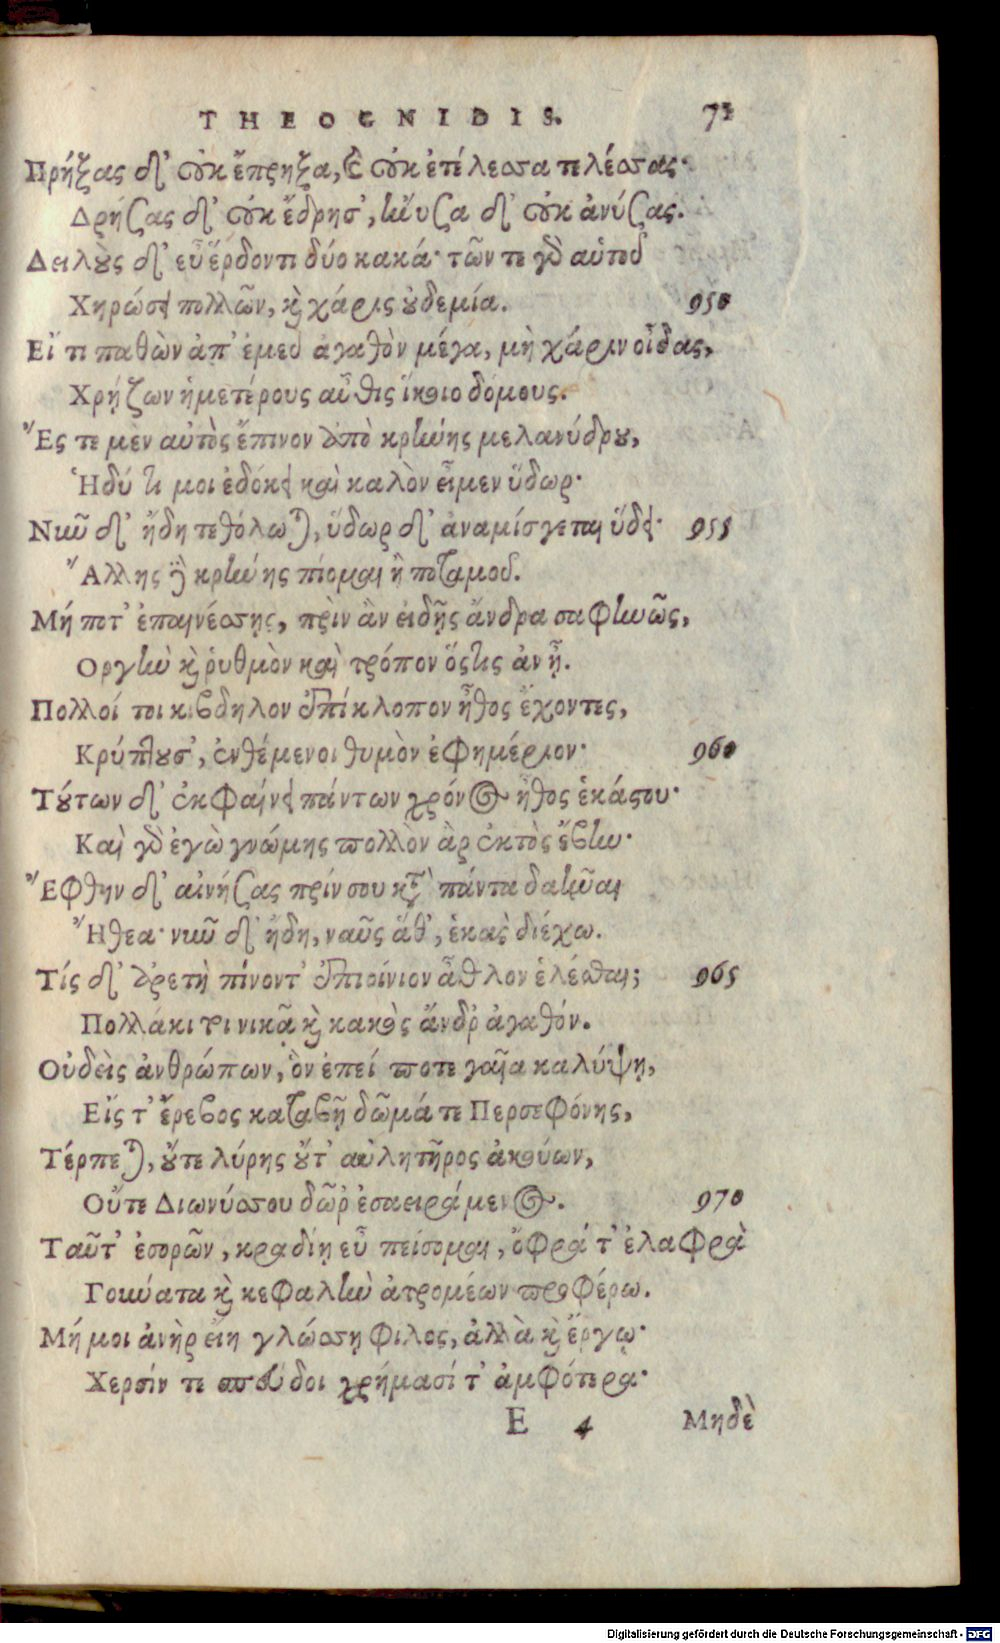 THEOGNIDIS. 71
Πρήξας δ᾽ οὐκ ἔπρηξα, καὶ οὐκ ἐτέλεσσα τελέσσας·
Δρήζας δ᾽ οὐκ ἔδρησ᾽, ἤνυζα δ᾽ οὐκ ἀνύζας.
Δειλοὺς δ᾽ εὖ ἕρδοντι δύο κακά· τῶν τε γὰρ αὑτοῦ
Χηρώσει πολλῶν, καὶ χάρις οὐδεμία. 950
Εἴ τι παθὼν ἀπ᾽ ἐμεῦ ἀγαθὸν μέγα, μὴ χάριν οἶδας,
Χρήζων ἡμετέρους αὖθις ἵκοιο δόμους.
Ἔς τε μὲν αὐτὸς ἔπινον ἀπὸ κρήνης μελανύδρου,
Ἡδύ τί μοι ἐδόκει καὶ καλὸν εἶμεν ὕδωρ·
Νῦν δ᾽ ἤδη τεθόλωται, ὕδωρ δ᾽ ἀναμίσγεται ὕδει· 955
Ἄλλης δὴ κρήνης πίομαι ἢ ποταμοῦ.
Μή ποτ᾽ ἐπαινέσσῃς, πρὶν ἂν εἰδῇς ἄνδρα σαφηνῶς,
Οργὴν καὶ ῥυθμὸν καὶ τρόπον ὅςτις ἂν ᾖ.
Πολλοί τοι κιβδηλον ἐπίκλοπον ἦθος ἔχοντες,
Κρύπτουσ᾽, ἐνθέμενοι θυμὸν ἐφημέριον· 960
Τούτων δ᾽ ἐκφαίνει πάντων χρόνος ἦθος ἑκάστου·
Καὶ γὰρ ἐγὼ γνώμης πολλὸν ἂρ ἐκτὸς ἔβην·
Ἔφθην δ᾽ αἰνήζας πρίν σου κατὰ πάντα δαῆναι
Ἤθεα· νῦν δ᾽ ἤδη, ναῦς ἅθ᾽, ἑκὰς διέχω.
Τίς δ᾽ ἀρετὴ πίνοντ᾽ ἐπιοίνιον ἆθλον ἑλέσθαι; 965
Πολλάκι τοι νικᾷ καὶ κακὸς ἄνδρ᾽ ἀγαθόν.
Οὐδεὶς ἀνθρώπων, ὃν ἐπεί ποτε γαῖα καλύψῃ,
Εἴς τ᾽ ἔρεβος καταβῇ δῶμά τε Περσεφόνης,
Τέρπεται, οὔτε λύρης οὔτ᾽ αὐλητῆρος ἀκούων,
Οὔτε Διωνύσσου δῶρ᾽ ἐσαειράμενος. 970
Ταῦτ᾽ ἐσορῶν, κραδίῃ εὖ πείσομαι, ὄφρά τ᾽ ἐλαφρὰ
Γούνατα καὶ κεφαλὴν ἀτρομέων προφέρω.
Μή μοι ἀνὴρ εἴη γλώσσῃ φιλος, ἀλλὰ καὶ ἔργῳ·
Χερσίν τε σπεύδοι χρήμασί τ᾽ ἀμφότερα·
E 4 Μηδὲ
Digitalisierung gefördert durch die Deutsche Forschungsgemeinschaft - DFG